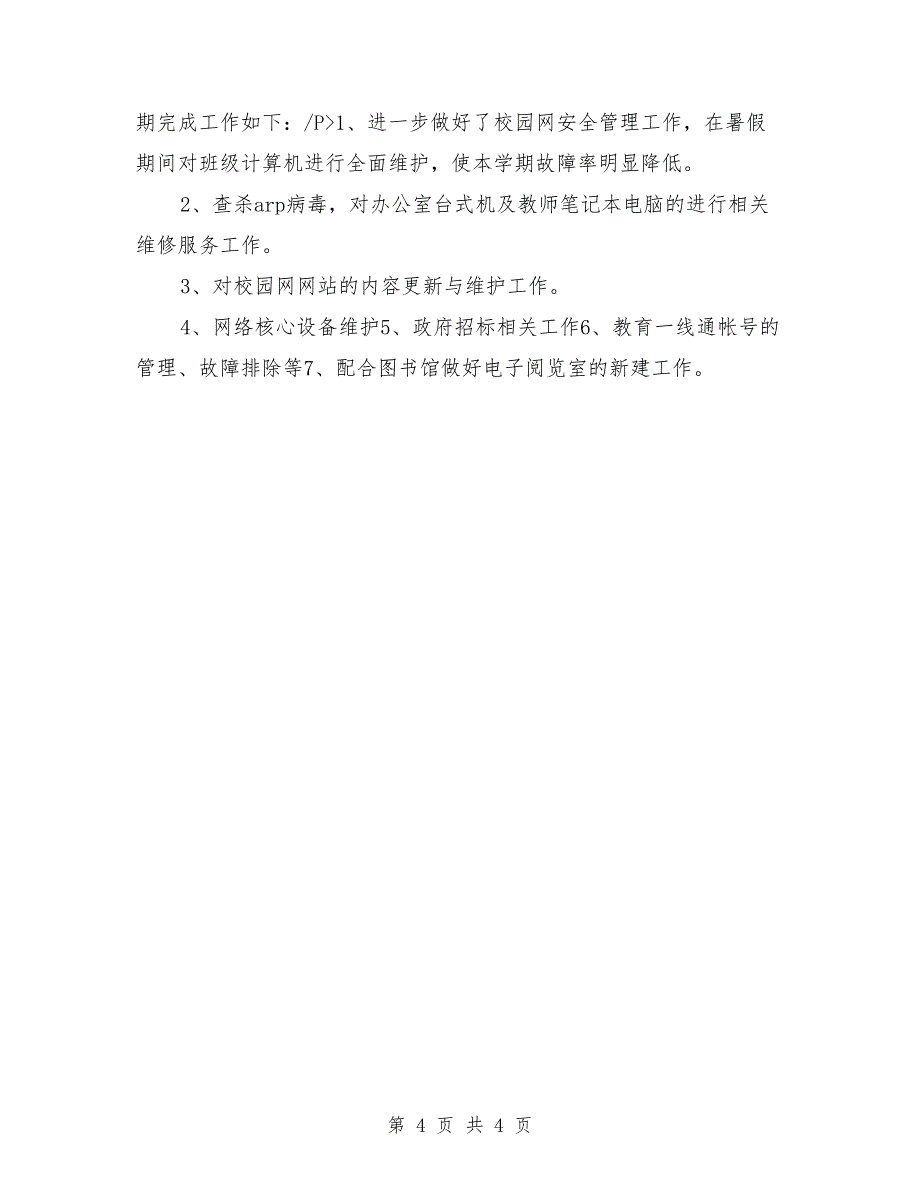 期完成工作如下：/P>1、进一步做好了校园网安全管理工作，在暑假
期间对班级计算机进行全面维护，使本学期故障率明显降低。
2、查杀arp病毒，对办公室台式机及教师笔记本电脑的进行相关
维修服务工作。
3、对校园网网站的内容更新与维护工作。
4、网络核心设备维护5、政府招标相关工作6、教育一线通帐号的
管理、故障排除等7、配合图书馆做好电子阅览室的新建工作。
第 4 页 共 4 页